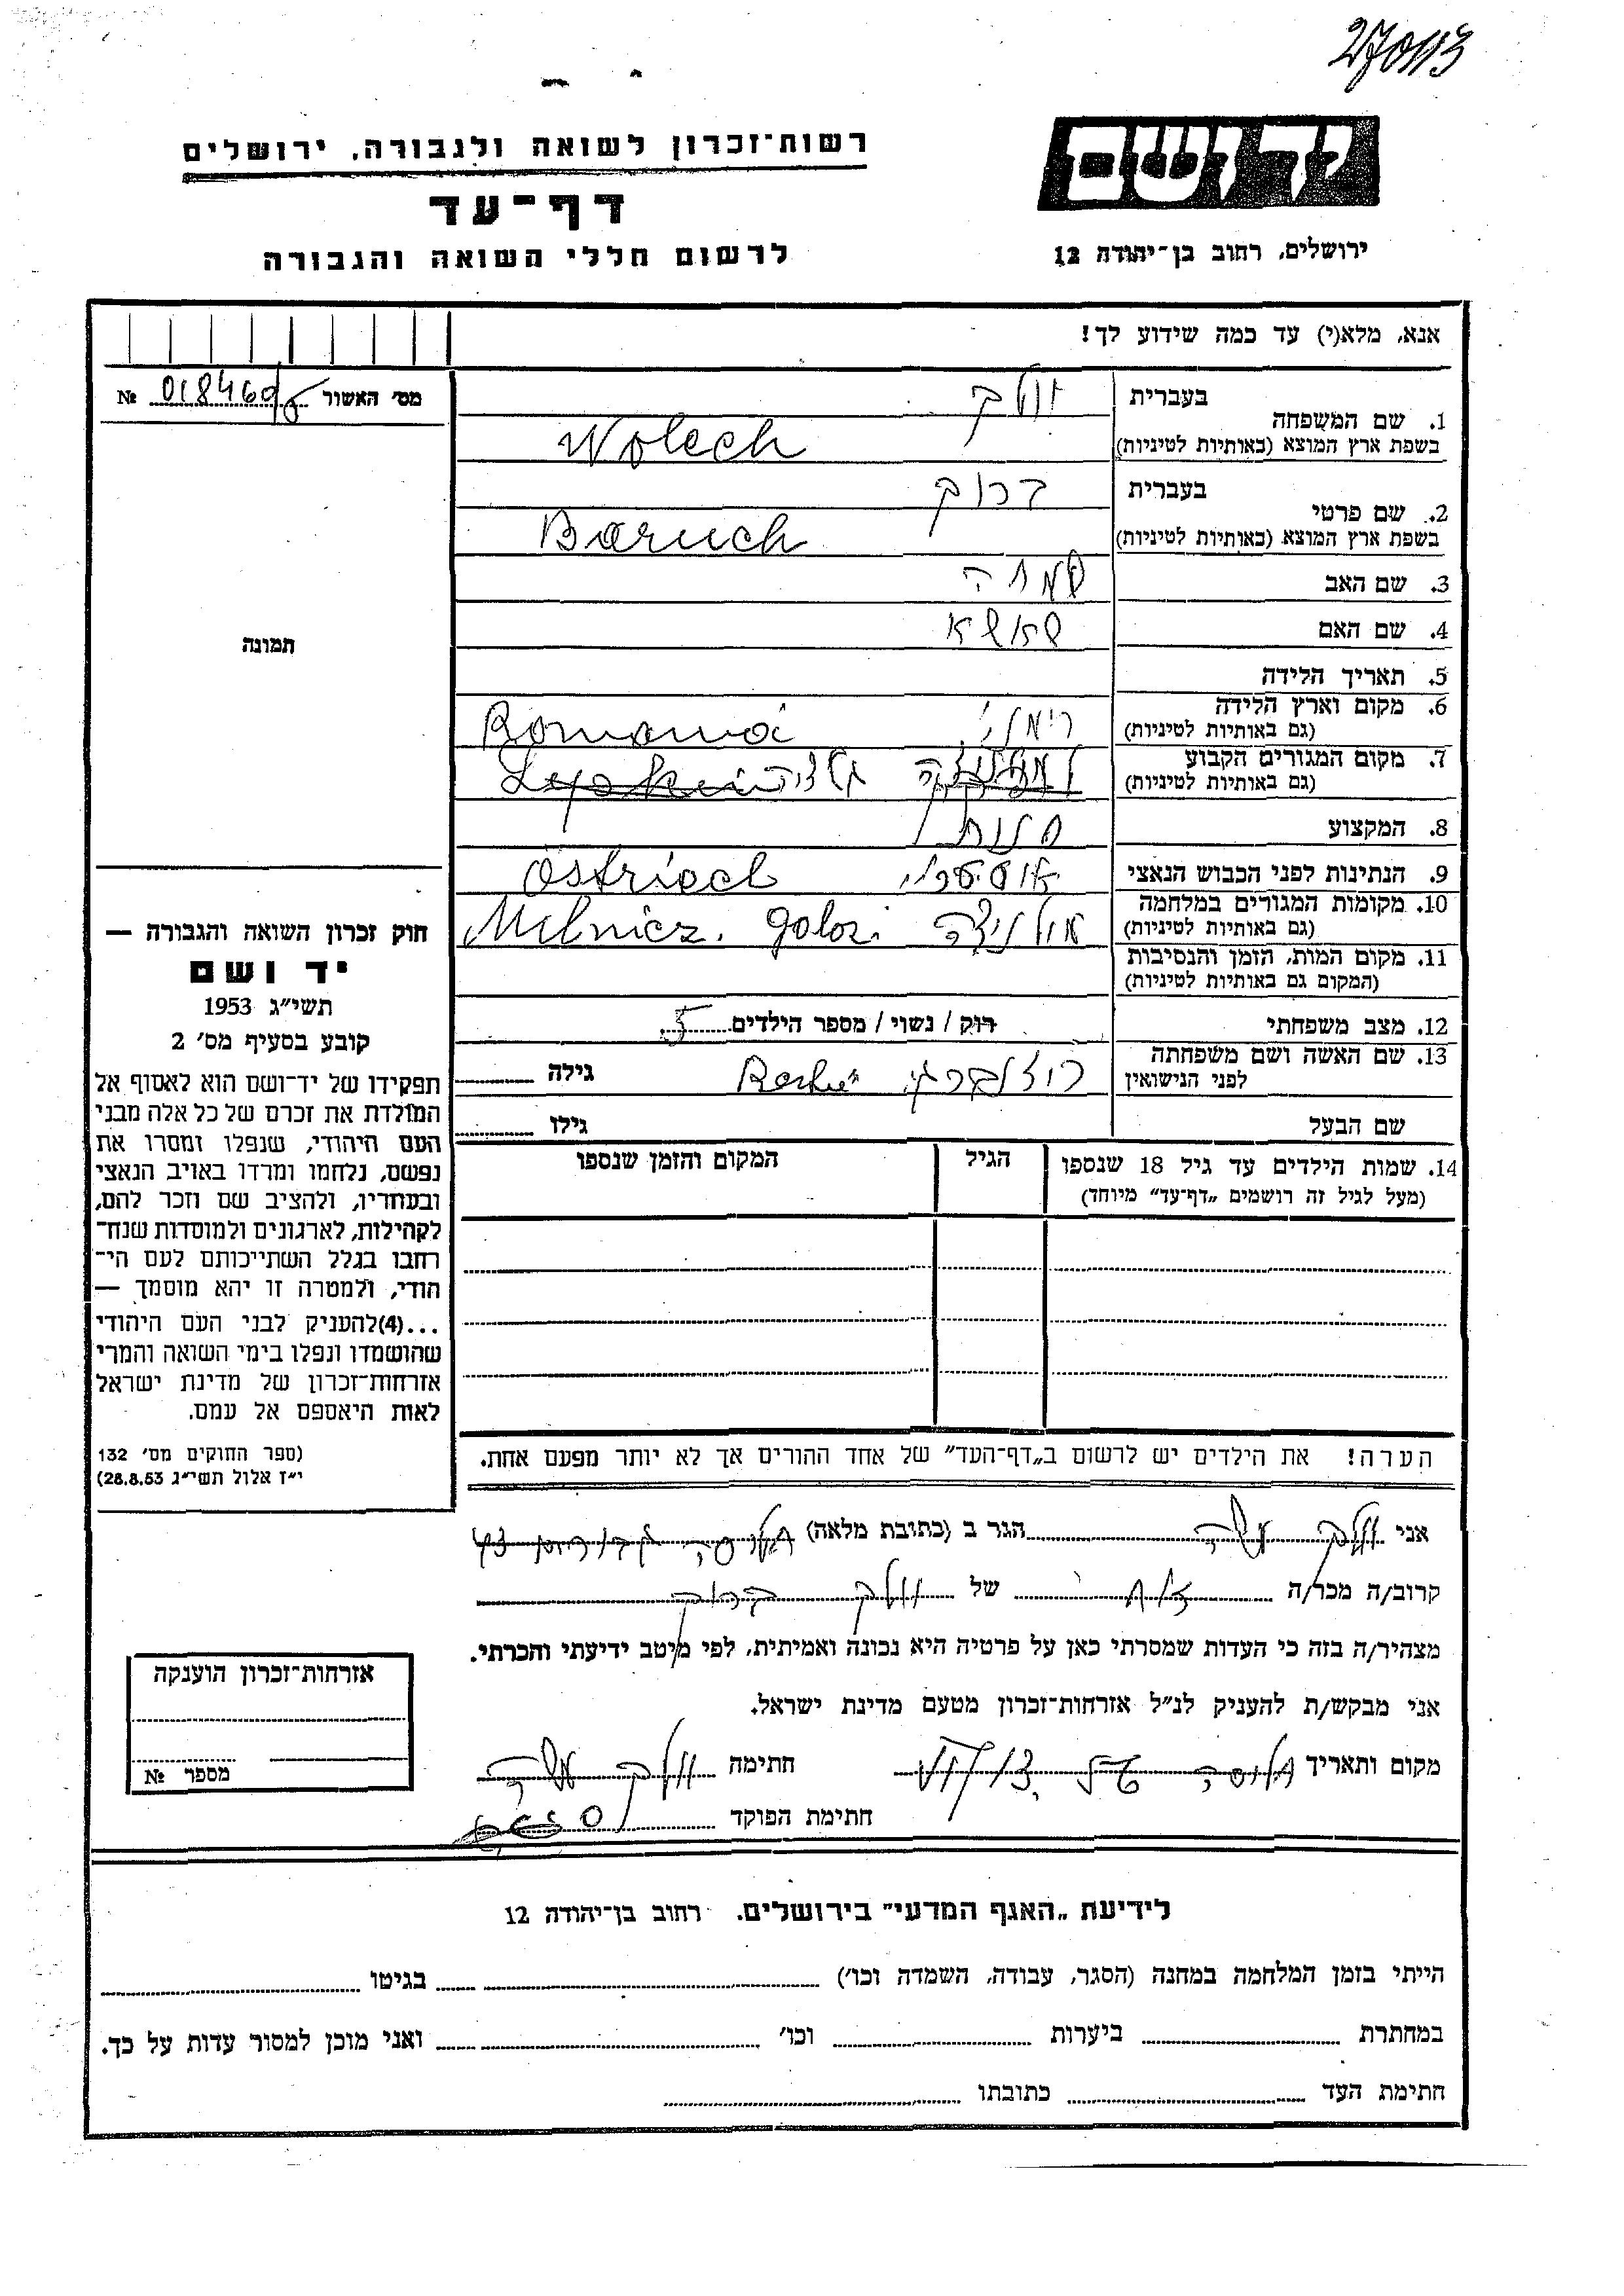 270113
יד ושם
רשות־זכרון לשואה ולגבורה, ירושלים
דף־עד
לרשום חללי השואה והגבורה
ירושלים, רחוב בן־יהודה 12
אנא, מלא(י) עד כמה שידוע לך!
מס׳ האשור № 018460/
1. שם המשפחה בעברית וולך
בשפת ארץ המוצא (באותיות לטיניות) Wolech
2. שם פרטי בעברית ברוך
בשפת ארץ המוצא (באותיות לטיניות) Baruch
3. שם האב שמחה
4. שם האם שאשא
5. תאריך הלידה
6. מקום וארץ הלידה
(גם באותיות לטיניות)
7. מקום המגורים הקבוע
(גם באותיות לטיניות)
8. המקצוע חנות
9. הנתינות לפני הכבוש הנאצי Östriech
10. מקומות המגורים במלחמה Melnicz. galoz.
(גם באותיות לטיניות)
11. מקום המות, הזמן והנסיבות
(המקום גם באותיות לטיניות)
12. מצב משפחתי רוק / נשוי / מספר הילדים 5
13. שם האשה ושם משפחתה
לפני הנישואין גילה
שם הבעל גילו
14. שמות הילדים עד גיל 18 שנספו הגיל המקום והזמן שנספו
(מעל לגיל זה רושמים „דף־עד״ מיוחד)
הערה! את הילדים יש לרשום ב„דף־העד״ של אחד ההורים אך לא יותר מפעם אחת.
תמונה
חוק זכרון השואה והגבורה —
יד ושם
תשי״ג 1953
קובע בסעיף מס׳ 2
תפקידו של יד־ושם הוא לאסוף אל
המולדת את זכרם של כל אלה מבני
העם היהודי, שנפלו ומסרו את
נפשם, נלחמו ומרדו באויב הנאצי
ובעוזריו, ולהציב שם וזכר להם,
לקהילות, לארגונים ולמוסדות שנח־
רחבו בגלל השתייכותם לעם הי־
הודי, ולמטרה זו יהא מוסמך —
...(4) להעניק לבני העם היהודי
שהושמדו ונפלו בימי השואה והמרי
אזרחות־זכרון של מדינת ישראל
לאות היאספם אל עמם.
(ספר החוקים מס׳ 132
י״ז אלול תשי״ג 28.8.53)
אני וולך משה הגר ב (כתובת מלאה)
קרוב/ה מכר/ה של וולך ברוך
מצהיר/ה בזה כי העדות שמסרתי כאן על פרטיה היא נכונה ואמיתית, לפי מיטב ידיעתי והכרתי.
אני מבקש/ת להעניק לנ״ל אזרחות־זכרון מטעם מדינת ישראל.
מקום ותאריך חתימה וולך משה
חתימת הפוקד
אזרחות־זכרון הוענקה
מספר №
לידיעת „האגף המדעי״ בירושלים. רחוב בן־יהודה 12
הייתי בזמן המלחמה במחנה (הסגר, עבודה, השמדה וכו׳) בגיטו
במחתרת ביערות וכו׳ ואני מוכן למסור עדות על כך.
חתימת העד כתובתו